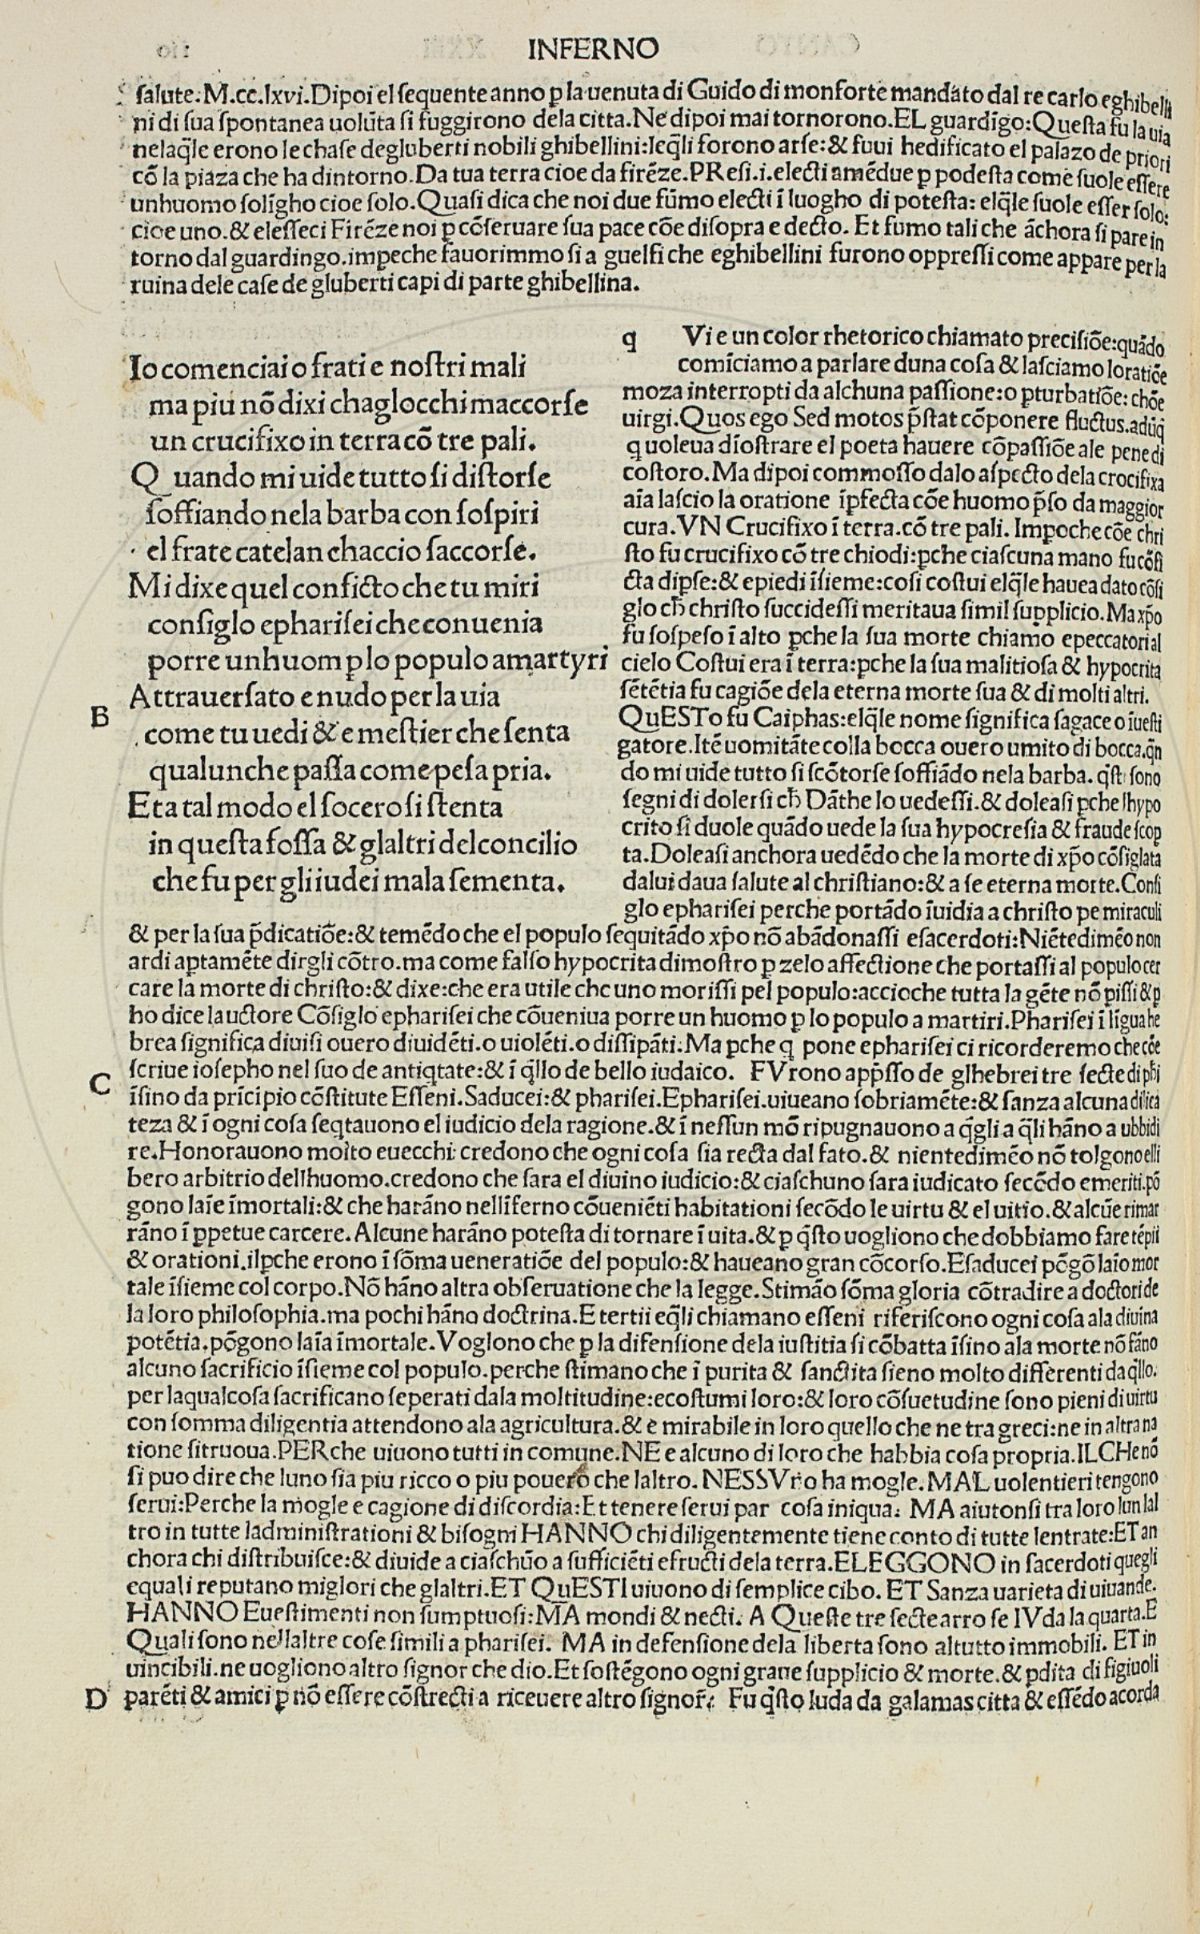 INFERNO
salute. M.cc.lxvi. Dipoi el sequente anno ꝑ la uenuta di Guido di monforte mandato dal re carlo eghibelli
ni di sua spontanea uolūta si fuggirono dela citta. Ne dipoi mai tornorono. EL guardīgo: Questa fu la uia
nelaq̄le erono le chase degluberti nobili ghibellini: leq̄li forono arse: & fuui hedificato el palazo de priori
cō la piaza che ha dintorno. Da tua terra cioe da firēze. PResi .i. electi amēdue ꝑ podesta come suole essere
unhuomo solīgho cioe solo. Quasi dica che noi due fūmo electi ī luogho di potesta: elq̄le suole esser solo:
cioe uno. & elesseci Firēze noi ꝑ cōseruare sua pace cōe disopra e decto. Et fumo tali che āchora si pare in
torno dal guardingo. impeche fauorimmo si a guelfi che eghibellini furono oppressi come appare per la
ruina dele case de gluberti capi di parte ghibellina.
Io comenciai o frati e nostri mali
ma piu nō dixi chaglocchi maccorse
un crucifixo in terra cō tre pali.
Quando mi uide tutto si distorse
soffiando nela barba con sospiri
el frate catelan chaccio saccorse.
Mi dixe quel conficto che tu miri
consiglo epharisei che conuenia
porre unhuom ꝑ lo populo a martyri
Attrauersato e nudo per la uia
B
come tu uedi & e mestier che senta
qualunche passa come pesa pria.
Et a tal modo el socero si stenta
in questa fossa & glaltri del concilio
che fu per gli iudei mala sementa.
q Vi e un color rhetorico chiamato precisiōe: quādo
comīciamo a parlare duna cosa & lasciamo loratiōe
moza interropti da alchuna passione: o ꝑturbatiōe: chōe
uirgi. Quos ego Sed motos p̄stat cōponere fluctus. adūq̄
q uoleua dīostrare el poeta hauere cōpassiōe ale pene di
costoro. Ma dipoi commosso dalo aspecto dela crocifixa
aīa lascio la oratione īpfecta cōe huomo p̄so da maggior
cura. VN Crucifixo ī terra. cō tre pali. Impoche cōe chri
sto fu crucifixo cō tre chiodi: ꝑche ciascuna mano fu cōfi
cta dipse: & epiedi īsieme: cosi costui elq̄le hauea dato cōsi
glo ch̄ christo succidessi meritaua simil supplicio. Ma xp̄o
fu sospeso ī alto ꝑche la sua morte chiamo epeccatori al
cielo Costui era ī terra: ꝑche la sua malitiosa & hypocrita
sētētia fu cagiōe dela eterna morte sua & di molti altri.
QuESTo fu Caiphas: elq̄le nome significa sagace o īuesti
gatore. Itē uomitāte colla bocca ouero umito di bocca. q̄n
do mi uide tutto si scōtorse soffiādo nela barba. q̄sti sono
segni di dolersi ch̄ Dāthe lo uedessi. & doleasi ꝑche lhypo
crito si duole quādo uede la sua hypocresia & fraude scop
ta. Doleasi anchora uedēdo che la morte di xp̄o cōsiglata
dalui daua salute al christiano: & a se eterna morte. Consi
glo epharisei perche portādo īuidia a christo pe miraculi
& per la sua p̄dicatiōe: & temēdo che el populo sequitādo xp̄o nō abādonassi esacerdoti: Niētedimēo non
ardi aꝑtamēte dirgli cōtro. ma come falso hypocrita dimostro ꝑ zelo affectione che portassi al populo cer
care la morte di christo: & dixe: che era utile che uno morissi pel populo: accioche tutta la gēte nō pissi & ꝑ
ho dice lauctore Cōsiglo epharisei che cōueniua porre un huomo ꝑ lo populo a martiri. Pharisei ī ligua he
brea significa diuisi ouero diuidēti. o uiolēti. o dissipāti. Ma ꝑche q̄ pone epharisei ci ricorderemo che cōe
C
scriue iosepho nel suo de antiq̄tate: & ī q̄llo de bello iudaico. FVrono app̄sso de glhebrei tre secte di phi
īsino da prīcipio cōstitute Esseni. Saducei: & pharisei. Epharisei. uiueano sobriamēte: & sanza alcuna dilica
teza & ī ogni cosa seq̄tauono el iudicio dela ragione. & ī nessun mō ripugnauono a q̄gli a q̄li hāno a ubbidi
re. Honorauono molto euecchi: credono che ogni cosa sia recta dal fato. & nientedimēo nō tolgono elli
bero arbitrio dellhuomo. credono che sara el diuino iudicio: & ciaschuno sara iudicato secōdo emeriti. pō
gono laīe īmortali: & che harāno nellīferno cōueniēti habitationi secōdo le uirtu & el uitio. & alcūe rimar
rāno ī ꝑpetue carcere. Alcune harāno potesta di tornare ī uita. & ꝑ q̄sto uogliono che dobbiamo fare tēpii
& orationi. ilꝑche erono ī sōma ueneratiōe del populo: & haueano gran cōcorso. Esaducei pōgō laīo mor
tale īsieme col corpo. Nō hāno altra obseruatione che la legge. Stimāo sōma gloria cōtradire a doctori de
la loro philosophia. ma pochi hāno doctrina. E tertii eq̄li chiamano esseni riferiscono ogni cosa ala diuina
potētia. pōgono laīa īmortale. Voglono che ꝑ la difensione dela iustitia si cōbatta īsino ala morte nō fāno
alcuno sacrificio īsieme col populo. perche stimano che ī purita & sanctita sieno molto differenti da q̄llo.
per laqualcosa sacrificano seperati dala moltitudine: ecostumi loro: & loro cōsuetudine sono pieni di uirtu
con somma diligentia attendono ala agricultura. & e mirabile in loro quello che ne tra greci: ne in altra na
tione si truoua. PERche uiuono tutti in comune. NE e alcuno di loro che habbia cosa propria. ILCHe nō
si puo dire che luno sia piu ricco o piu pouero che laltro. NESSVro ha mogle. MAL uolentieri tengono
serui: Perche la mogle e cagione di discordia: Et tenere serui par cosa iniqua: MA aiutonsi tra loro lun lal
tro in tutte ladministrationi & bisogni HANNO chi diligentemente tiene conto di tutte lentrate: ET an
chora chi distribuisce: & diuide a ciaschūo a sufficiēti efructi dela terra. ELEGGONO in sacerdoti quegli
equali reputano miglori che glaltri. ET QuESTI uiuono di semplice cibo. ET Sanza uarieta di uiuande.
HANNO Euestimenti non sumptuosi: MA mondi & necti. A Queste tre secte arrose IVda la quarta. E
Quali sono nellaltre cose simili a pharisei. MA in defensione dela liberta sono altutto immobili. ET in
uincibili. ne uogliono altro signor che dio. Et sostēgono ogni graue supplicio & morte. & ꝑdita di figiuoli
D
parēti & amici ꝑ nō essere cōstrecti a riceuere altro signor̄: Fu q̄sto Iuda da galamas citta & essēdo acorda